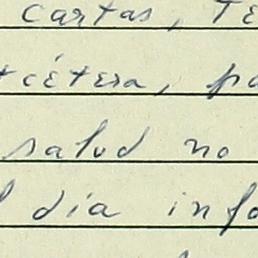 cartas, te
tcétera, pa
salud no
l día info